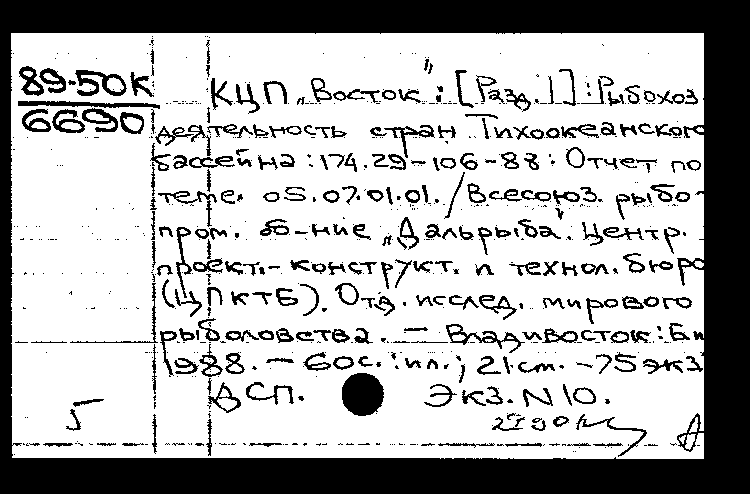 89-50К
6690
КЦП „Восток“: [Разд. 1] : Рыбохоз.
деятельность стран Тихоокеанского
бассейна : 174.29-106-88 : Отчет по
теме. 05.07.01.01. / Всесоюз. рыбо-
пром. об-ние „Дальрыба“. Центр.
проект.- конструкт. и технол. бюро
(ЦПКТБ). Отд. исслед. мирового
рыболовства. — Владивосток : Би
1988. — 60с. : ил. ; 21 см. -75 экз
ДСП. Экз. N 10.
5